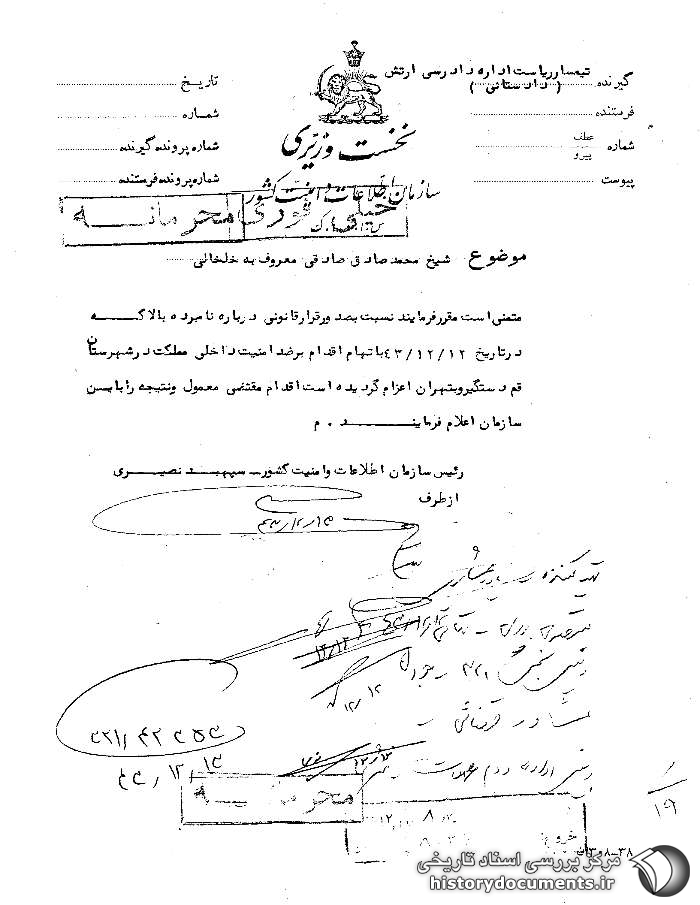 گیرنده تیمسار ریاست اداره دادرسی ارتش
( دادستانی )
فرستنده
شماره عطف
پیرو
پیوست
تاریخ
شماره
شماره پرونده گیرنده
شماره پرونده فرستنده
نخست وزیری
سازمان اطلاعات و امنیت کشور
س.ا.و.ا.ک
خیلی فوری
محرمانه
موضوع شیخ محمد صادق صادقی معروف به خلخالی
متمنی است مقرر فرمایند نسبت بصدور قرار قانونی درباره نامبرده بالا که
در تاریخ ۴۳/۱۲/۱۲ با تهام اقدام برضد امنیت داخلی مملکت در شهرستان
قم دستگیر و بتهران اعزام گردیده است اقدام مقتضی معمول و نتیجه را باین
سازمان اعلام فرمایند . م
رئیس سازمان اطلاعات و امنیت کشور ـ سپهبد نصیری
از طرف
تهیه کننده
رئیس بخش ۳۲۱
رئیس اداره دوم عملیات
۴۳/۱۲/۱۳
محرمانه
۱۹
مرکز بررسی اسناد تاریخی
historydocuments.ir